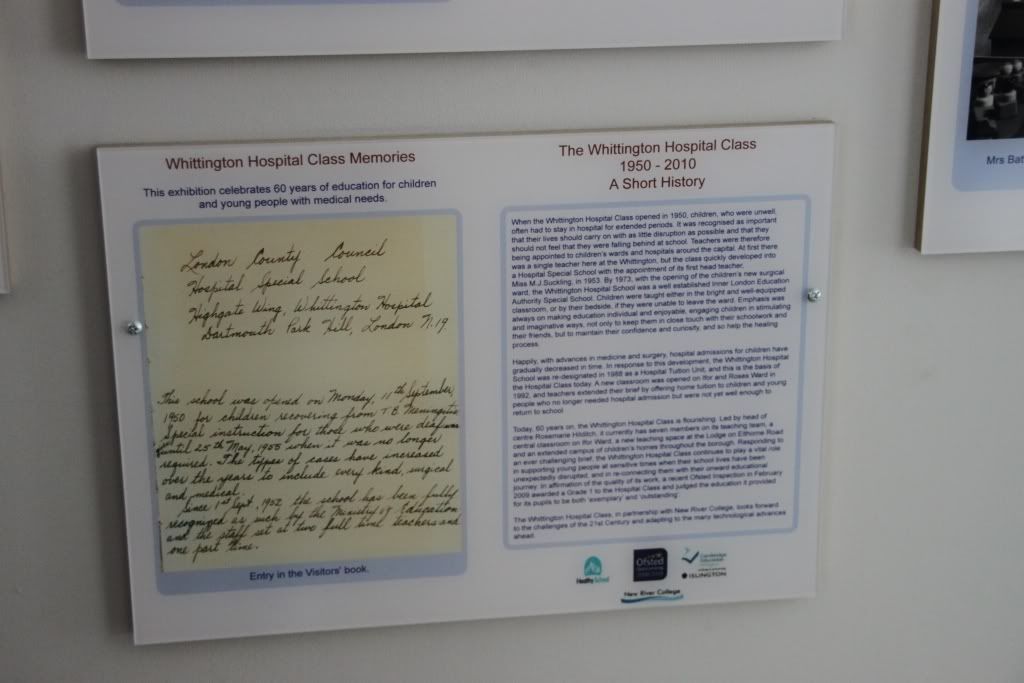 Whittington Hospital Class Memories
This exhibition celebrates 60 years of education for children
and young people with medical needs.
London County Council
Hospital Special School
Highgate Wing, Whittington Hospital
Dartmouth Park Hill, London N.19
This school was opened on Monday, 11th September,
1950 for children recovering from T.B. Meningitis
Special instruction for those who were deaf was
until 25th May, 1955 when it was no longer
required. The types of cases have increased
over the years to include every kind, surgical
and medical.
Since 1st Sept. 1952 the school has been fully
recognized as such by the Ministry of Education
and the staff set at two full time teachers and
one part time.
Entry in the Visitors' book.
The Whittington Hospital Class
1950 - 2010
A Short History
When the Whittington Hospital Class opened in 1950, children, who were unwell,
often had to stay in hospital for extended periods. It was recognised as important
that their lives should carry on with as little disruption as possible and that they
should not feel that they were falling behind at school. Teachers were therefore
being appointed to children's wards and hospitals around the capital. At first there
was a single teacher here at the Whittington, but the class quickly developed into
a Hospital Special School with the appointment of its first head teacher,
Miss M.J.Suckling, in 1953. By 1973, with the opening of the children's new surgical
ward, the Whittington Hospital School was a well established Inner London Education
Authority Special School. Children were taught either in the bright and well-equipped
classroom, or by their bedside, if they were unable to leave the ward. Emphasis was
always on making education individual and enjoyable, engaging children in stimulating
and imaginative ways, not only to keep them in close touch with their schoolwork and
their friends, but to maintain their confidence and curiosity, and so help the healing
process.
Happily, with advances in medicine and surgery, hospital admissions for children have
gradually decreased in time. In response to this development, the Whittington Hospital
School was re-designated in 1988 as a Hospital Tuition Unit, and this is the basis of
the Hospital Class today. A new classroom was opened on Ifor and Roses Ward in
1992, and teachers extended their brief by offering home tuition to children and young
people who no longer needed hospital admission but were not yet well enough to
return to school
Today, 60 years on, the Whittington Hospital Class is flourishing. Led by head of
centre Rosemarie Hilditch, it currently has seven members on its teaching team, a
central classroom on Ifor Ward, a new teaching space at the Lodge on Elthorne Road
and an extended campus of children's homes throughout the borough. Responding to
an ever challenging brief, the Whittington Hospital Class continues to play a vital role
in supporting young people at sensitive times when their school lives have been
unexpectedly disrupted, and in re-connecting them with their onward educational
journey. In affirmation of the quality of its work, a recent Ofsted Inspection in February
2009 awarded a Grade 1 to the Hospital Class and judged the education it provided
for its pupils to be both 'exemplary' and 'outstanding'.
The Whittington Hospital Class, in partnership with New River College, looks forward
to the challenges of the 21st Century and adapting to the many technological advances
ahead.
Healthy School
Ofsted
Cambridge
Education
ISLINGTON
New River College
Mrs Bat